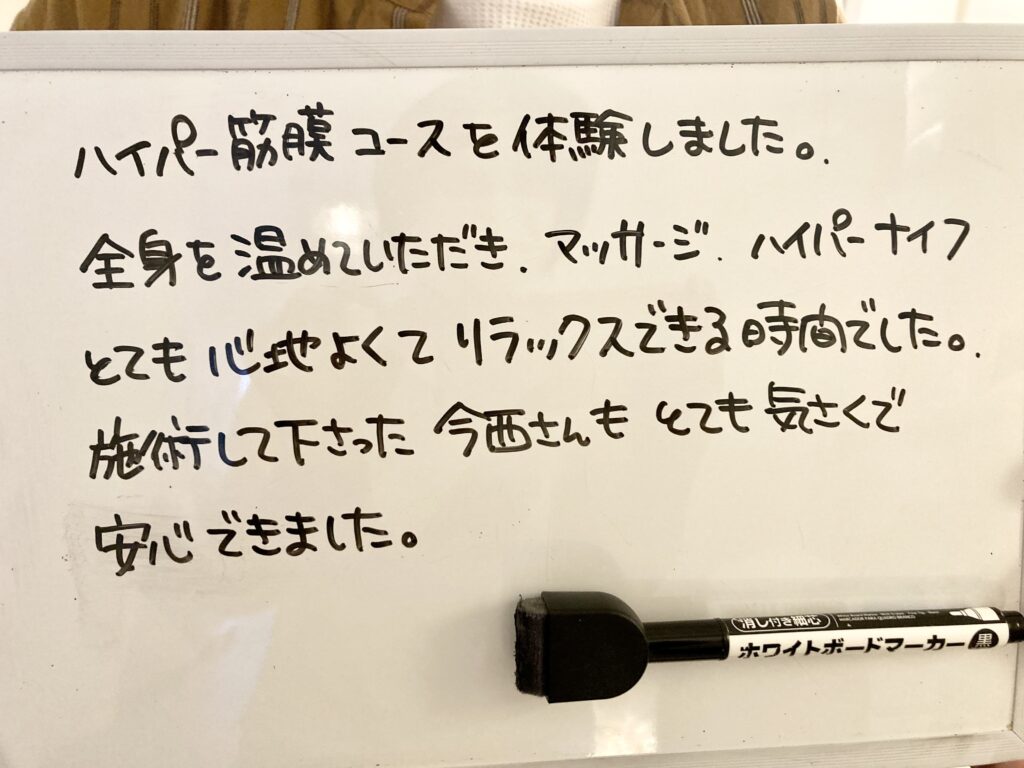 ハイパー筋膜コースを体験しました。
全身を温めていただき、マッサージ、ハイパーナイフ
とても心地よくてリラックスできる時間でした。
施術して下さった今西さんもとても気さくで
安心できました。
消し付き細芯
ホワイトボードマーカー 黒